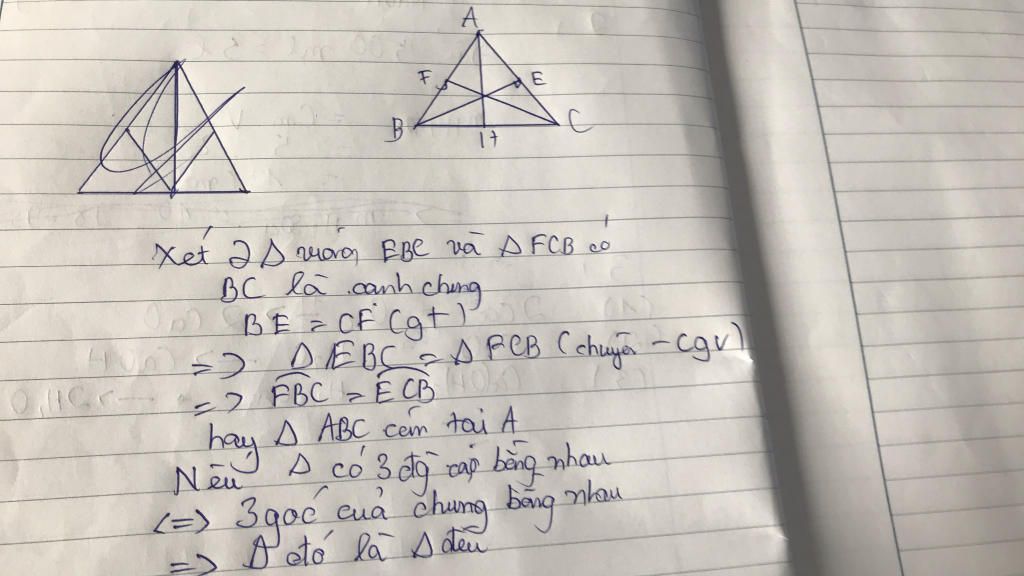 A
F
E
B
C
H
Xét 2 Δ vuông EBC và Δ FCB có
BC là cạnh chung
BE = CF (gt)
=> Δ EBC = Δ FCB (chuyền - cgv)
=> FBC = ECB
hay Δ ABC cân tại A
Nếu Δ có 3 đg cao bằng nhau
<=> 3 góc của chung bằng nhau
=> Δ đó là Δ đều